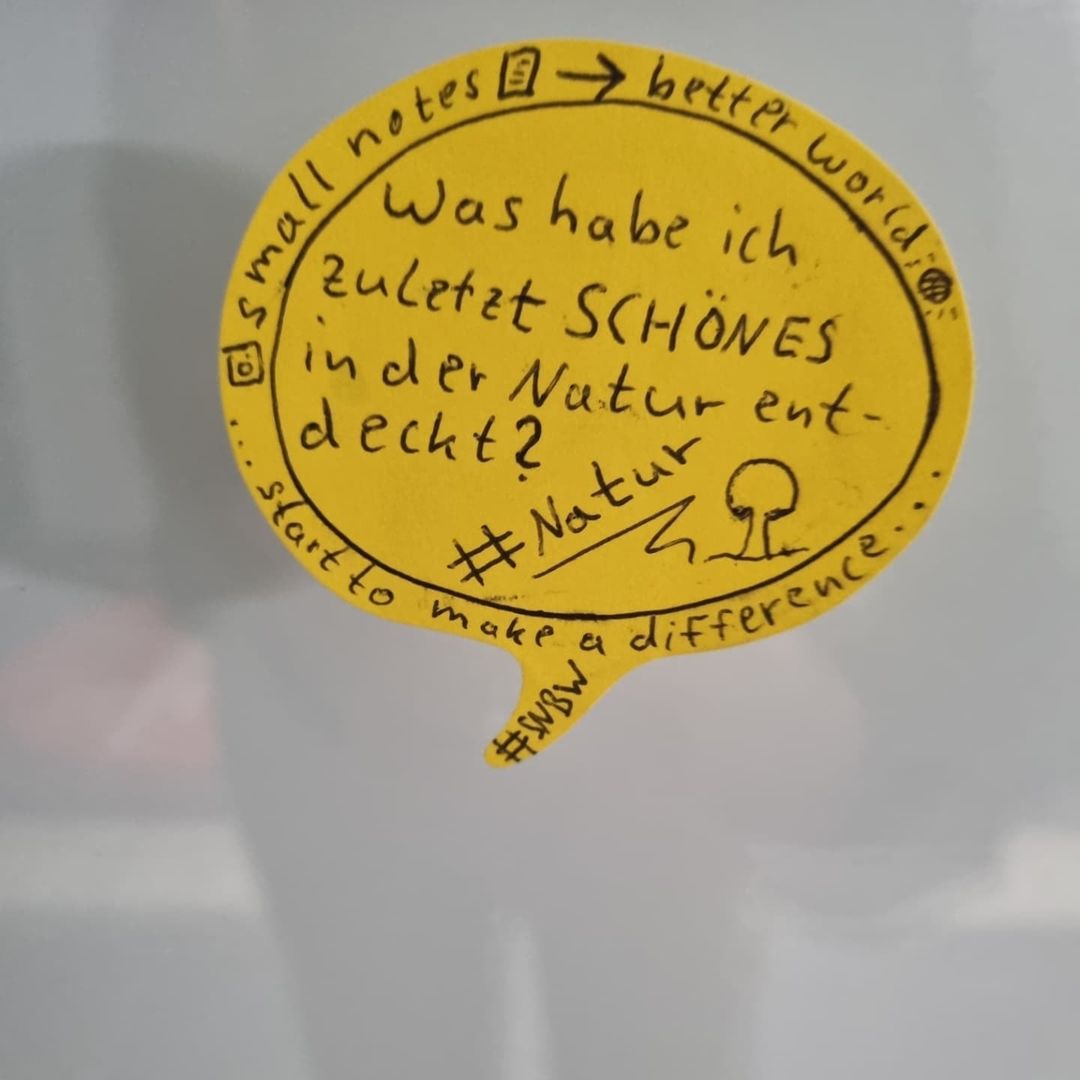 small notes → better world
Was habe ich
zuletzt SCHÖNES
in der Natur ent-
deckt?
#Natur
... start to make a difference...
#SNBW